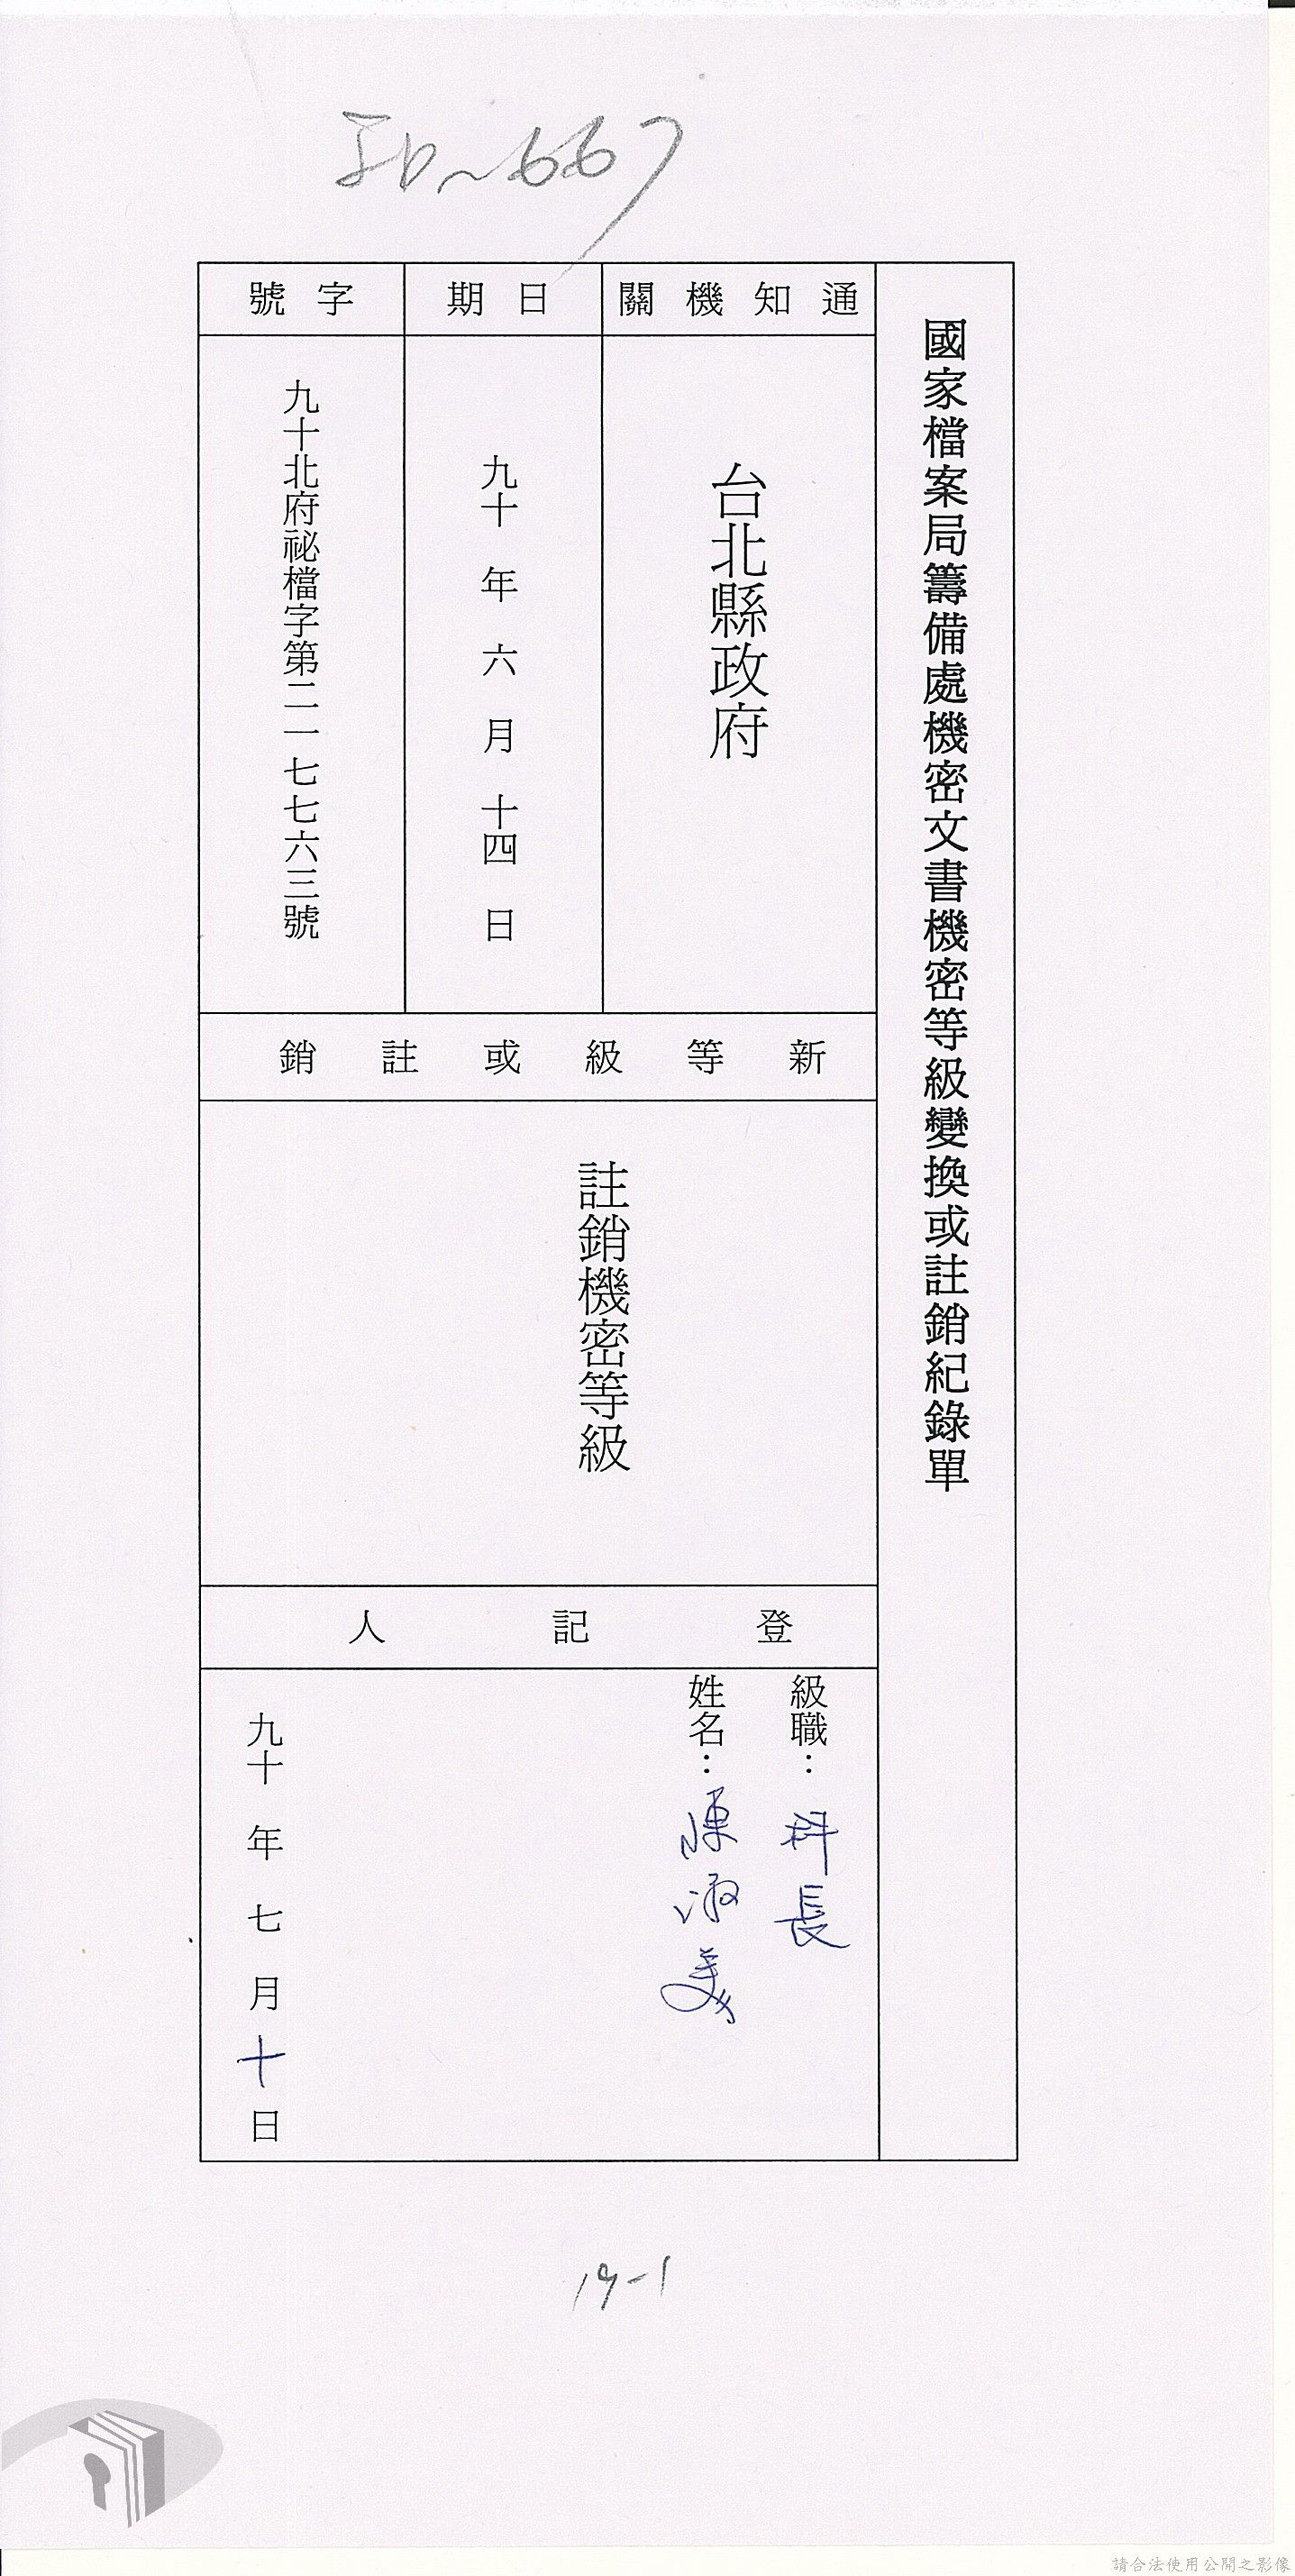 國家檔案局籌備處機密文書機密等級變換或註銷紀錄單
通知機關
台北縣政府
日期
九十年六月十四日
字號
九十北府祕檔字第二一七七六三號
新等級或註銷
註銷機密等級
登記人
級職：科長
姓名：陳淑美
九十年七月十日
19-1
請合法使用公開之影像